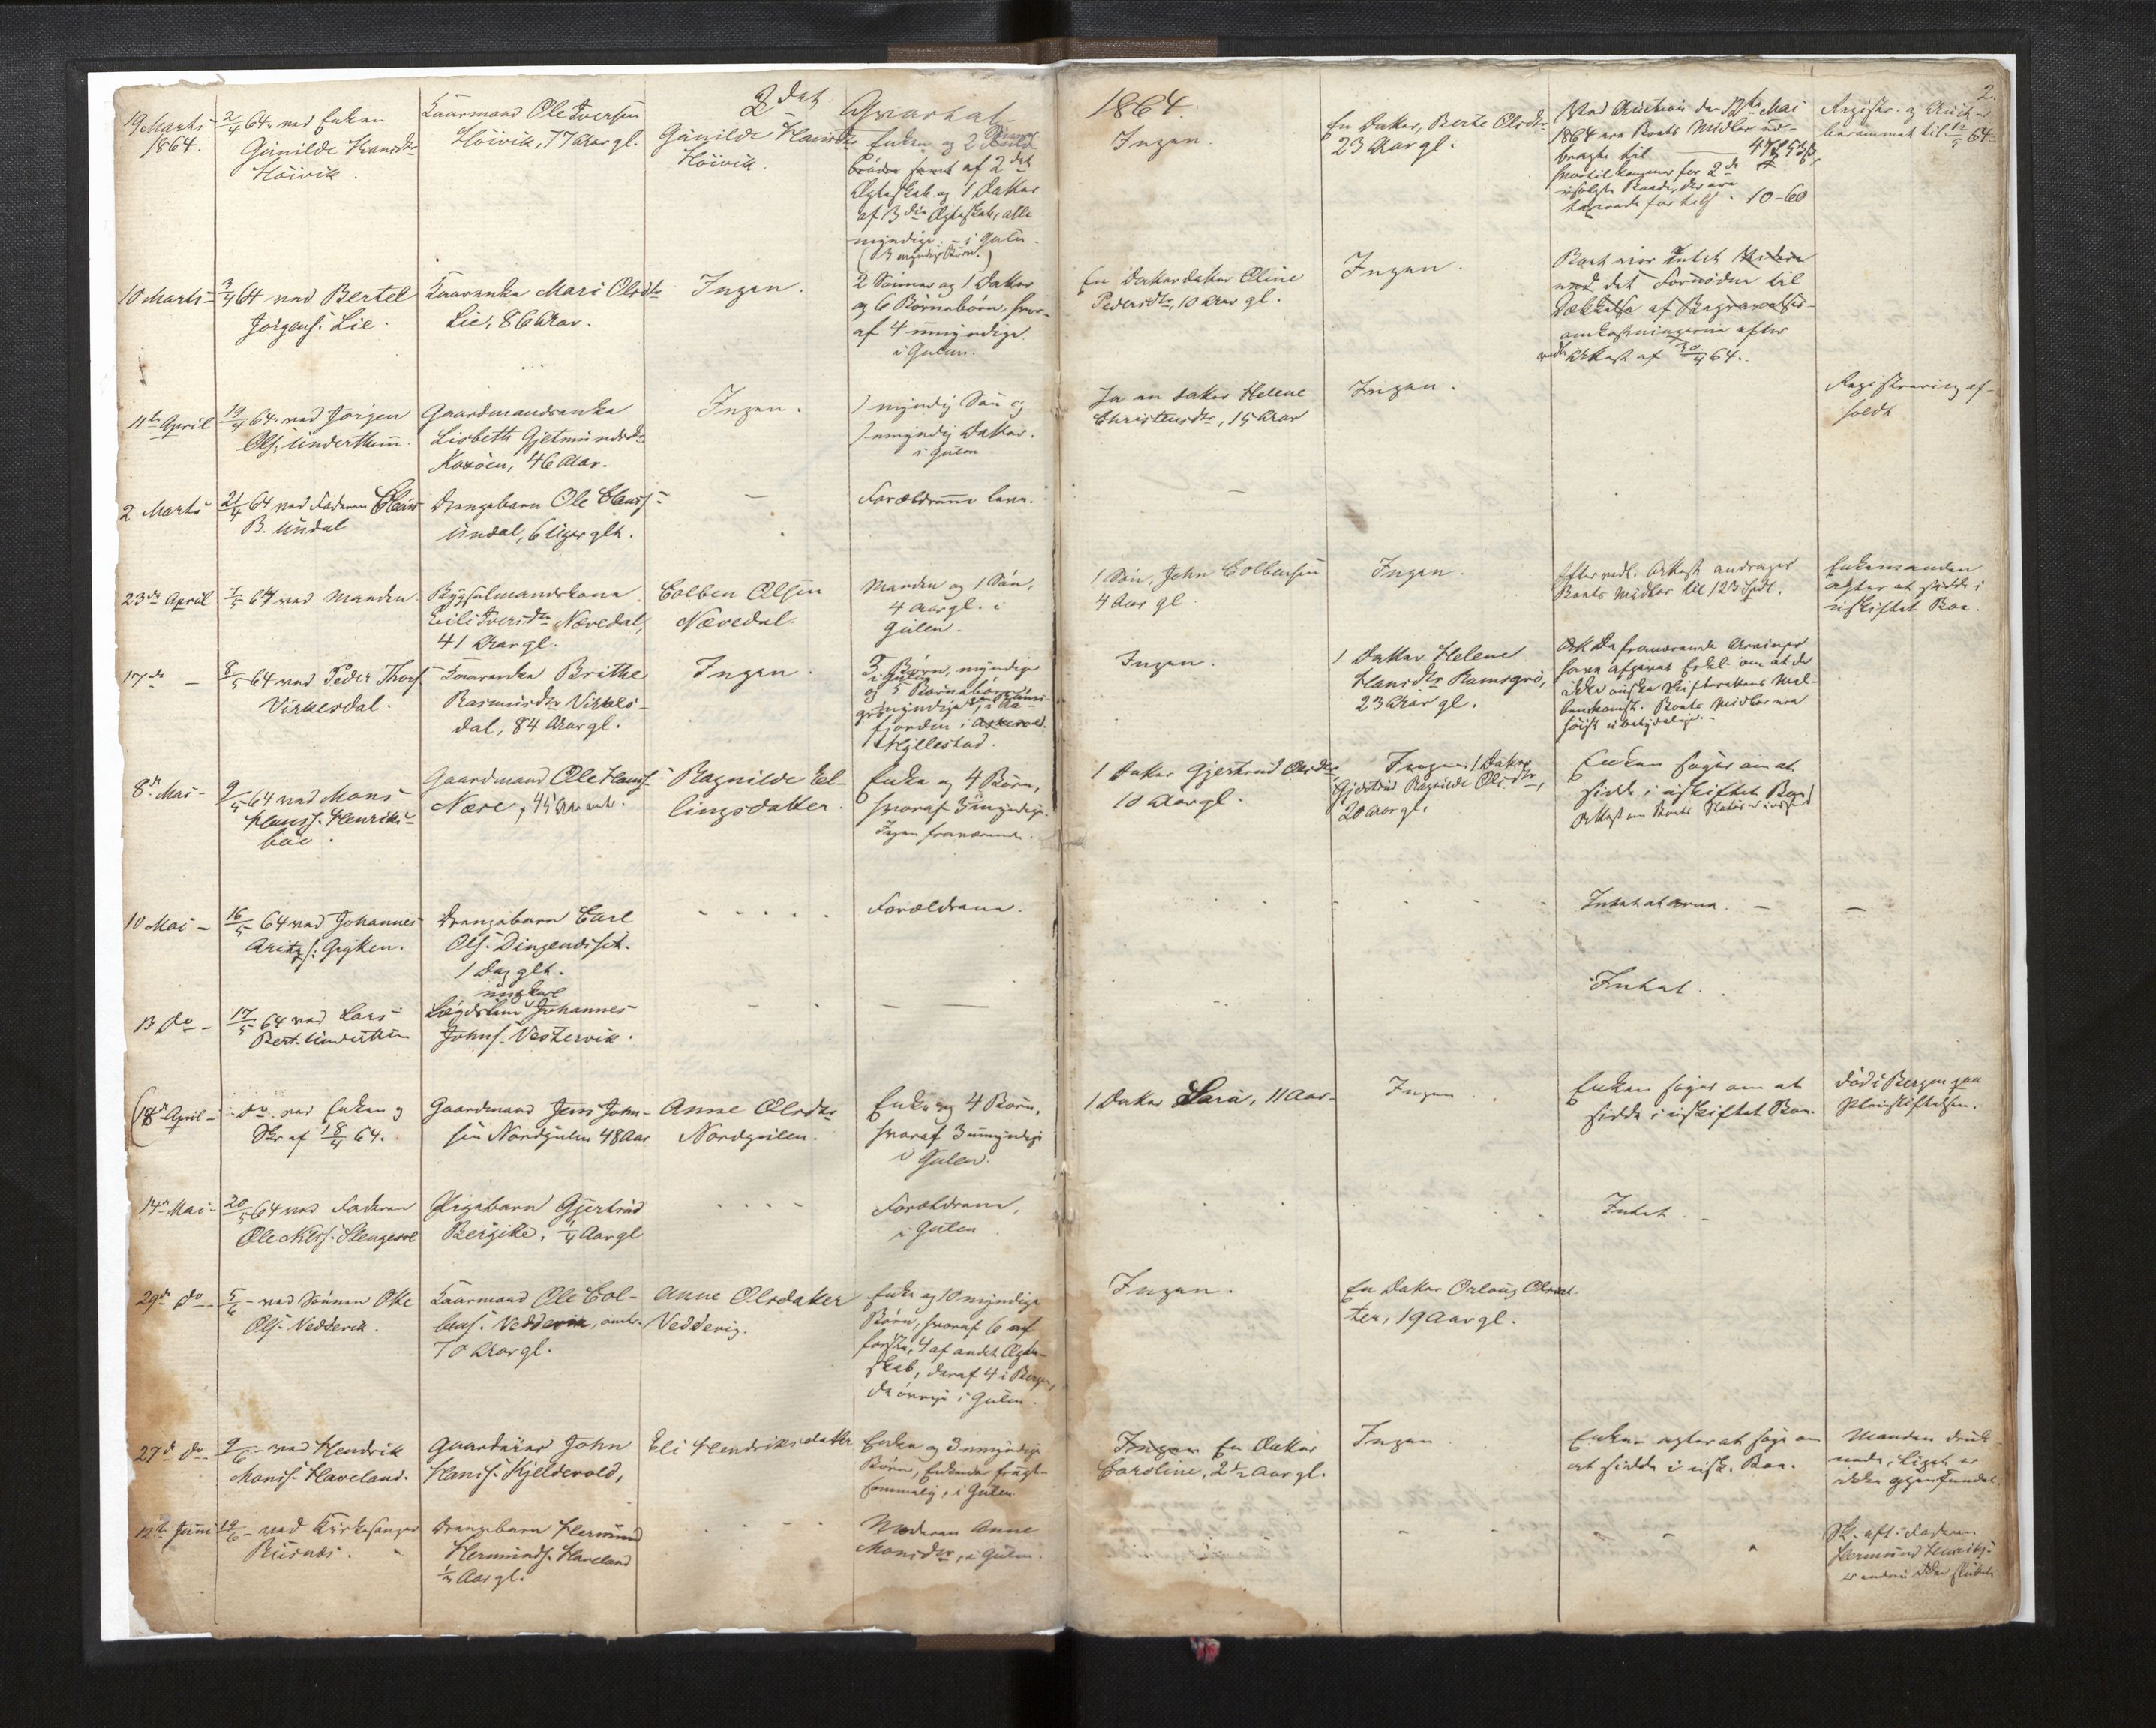 2det Qvartal 1864.
2.
19 Marts
1864.
2/4 64 ved Enken
Gunilde Hansdtr
Höivik.
Kaarmand Ole Iversen
Höivik, 77 Aar gl.
Gunilde Hansdtr
Höivik.
Enken og 2
af 2det
Ægteskab og 1 Datter
af 3die Ægteskab, alle
myndige - i Gulen.
Ingen.
En Datter, Berte Olsdtr
23 Aar gl.
Ved Auction den 12te Mai
1864 ere Boets Midler ud-
bragte til
hvortil kommer for 2de
usolgte Baade, der ere
10-60
Registr. og Auct.
berammet til 12/5 64
10 Marts
3/4 64 ved Bertel
Jörgens. Lie.
Kaarenke Mari Olsdtr
Lie, 86 Aar.
Ingen.
2 Sönner og 1 Datter
og 6 Börnebörn, hvor-
af 4 umyndige
i Gulen.
En Datterdatter Oline
Pedersdtr, 10 Aar gl.
Ingen.
Boet eier Intet
det Fornödne til
Dækkelse af Begravelses-
omkostningerne efter
Attest af 30/4 64.
11te April
19/4 64 ved Jörgen
Ols. Underthun.
Gaardmandsenke
Lisbeth Gjetmundsdtr
Koxöen, 46 Aar.
Ingen.
1 myndig Sön og
1 umyndig Datter.
i Gulen
Ja en Datter Helene
Christensdtr, 15 Aar
Ingen.
Registrering af-
holdt
2 Marts
21/4 64 ved Faderen Hans
B. Undal
Drengebarn Ole Hanss.
Undal, 6 Uger glt.
-
Forældrene leve.
-
23de April
7/5 64 ved Manden.
Bygselmandskone
Eili Iversdtr Nævedal,
41 Aar gl.
Colben Olsen
Nævedal.
Manden og 1 Sön,
4 Aar gl. i
Gulen.
1 Sön, John Colbensen
4 Aar gl.
Ingen.
Efter vedl. Attest andrager
Boets Midler til 123 Spdl.
Enkemanden
agter at sidde i
uskiftet Boe.
17de -
8/5 64 ved Peder Thors.
Virkesdal.
Kaarenke Brithe
Rasmusdtr Virkes-
dal, 84 Aar gl.
Ingen.
3 Börn, myndige
i Gulen
og 5 Börnebörn
myndige
fjorden i Askevold.
1 Hyllestad.
Ingen.
1 Datter Helene
Hansdtr Ramsgrö,
23 Aar gl.
De fraværende Arvinger
have afgivet Erkl. om at de
ikke önske Skifterettens Mel-
lemkomst. Boets Midler ere
höist ubetydelige.
8de Mai -
9/5 64 ved Mons
Hanss. Henriks-
böe.
Gaardmand Ole Hanss.
Nære, 45 Aar
Ragnilde El-
lingsdatter.
Enke og 4 Börn,
hvoraf 3 umyndige.
Ingen fraværende.
1 Datter Gjertrud Olsdtr
10 Aar gl.
Ingen 1 Datter
Ragnilde Olsdtr,
20 Aar gl.
Enken söger om at
sidde i uskiftet Boe
Attest om Boets Status er
10 Mai -
16/5 64 ved Johannes
Grytten.
Drengebarn Carl
Ols. Dingenesset.
1 Dag glt.
Forældrene.
Intet at arve. -
-
13 do -
17/5 64 ved Lars
Bert. Underthun
ungkarl
Lægdslem Johannes
Johns. Vestervik.
Intet.
18de April -
do ved Enken og
Skr af 18/5 64.
Gaardmand Jens John-
sen Nordgulen 48 Aar
Anne Olsdtr
Nordgulen.
Enke og 4 Börn,
hvoraf 3 umyndige
i Gulen.
1 Datter Sara, 11 Aar.
Ingen
Enken söger om at
sidde i uskiftet Boe.
död i Bergen paa
Pleiestiftelsen.
14de Mai -
20/5 64 ved Faderen
Ole Nils. Stengevol
Pigebarn Gjertrud
Bergitte, 1/4 Aar gl
Forældrene,
i Gulen
Intet.
29de do
5/6 - ved Sönnen Ole
Ols. Vedderik.
Kaarmand Ole Col-
bens. Vedderik, omtr.
70 Aar gl.
Anne Olsdatter
Vedderig.
Enke og 10 myndige
Börn, hvoraf 6 af
förste, 4 af andet Ægte-
skab, deraf 4 i Bergen,
de övrige i Gulen.
Ingen.
En Datter Orlaug Olsdat-
ter, 19 Aar gl.
27de do
9/6 - ved Hendrik
Monss. Haveland.
Gaardeier John
Hanss. Kjeldevold,
Eli Hendriksdatter
Enke og 3 umyndige
Börn, Enken er frugt-
sommelig, i Gulen
Ingen En Datter
Caroline, 2 1/2 Aar gl.
Ingen
Enken agter at söge om
at sidde i usk. Boe.
Manden druk-
nede, Liget er
ikke gjenfundet.
12te Juni
19/6 - ved Kirkesanger
Risnæs.
Drengebarn Hermund
Hermunds. Haveland
1/2 Aar gl.
Moderen Anne
Monsdtr, i Gulen.
Sk. eft. Faderen
Hermund
er endnu ikke sluttet